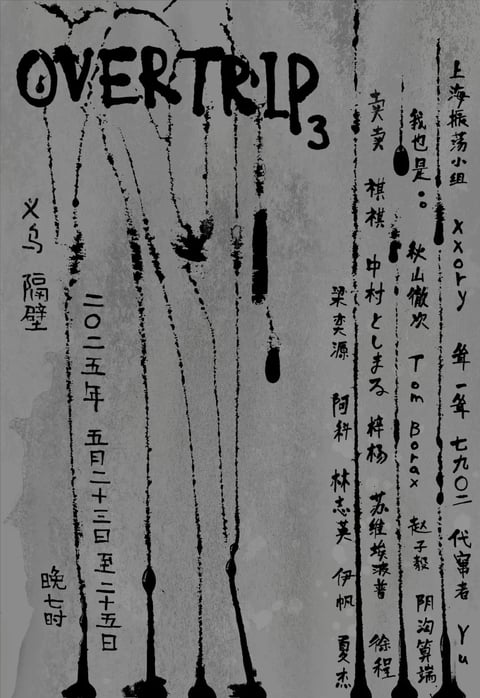 OVERTRIP 3
上海振荡小组 xxory 耸一耸 七九〇二 代窜者 Yu
我也是:: 秋山徹次 Tom Borax 赵子毅 阴沟算端
卖卖 棋棋 中村としまる 梓杨 苏维埃波普 徐程
梁奕源 阿科 林志英 伊帆 夏杰
二〇二五年 五月二十三日至二十五日
晚七时
义乌 隔壁